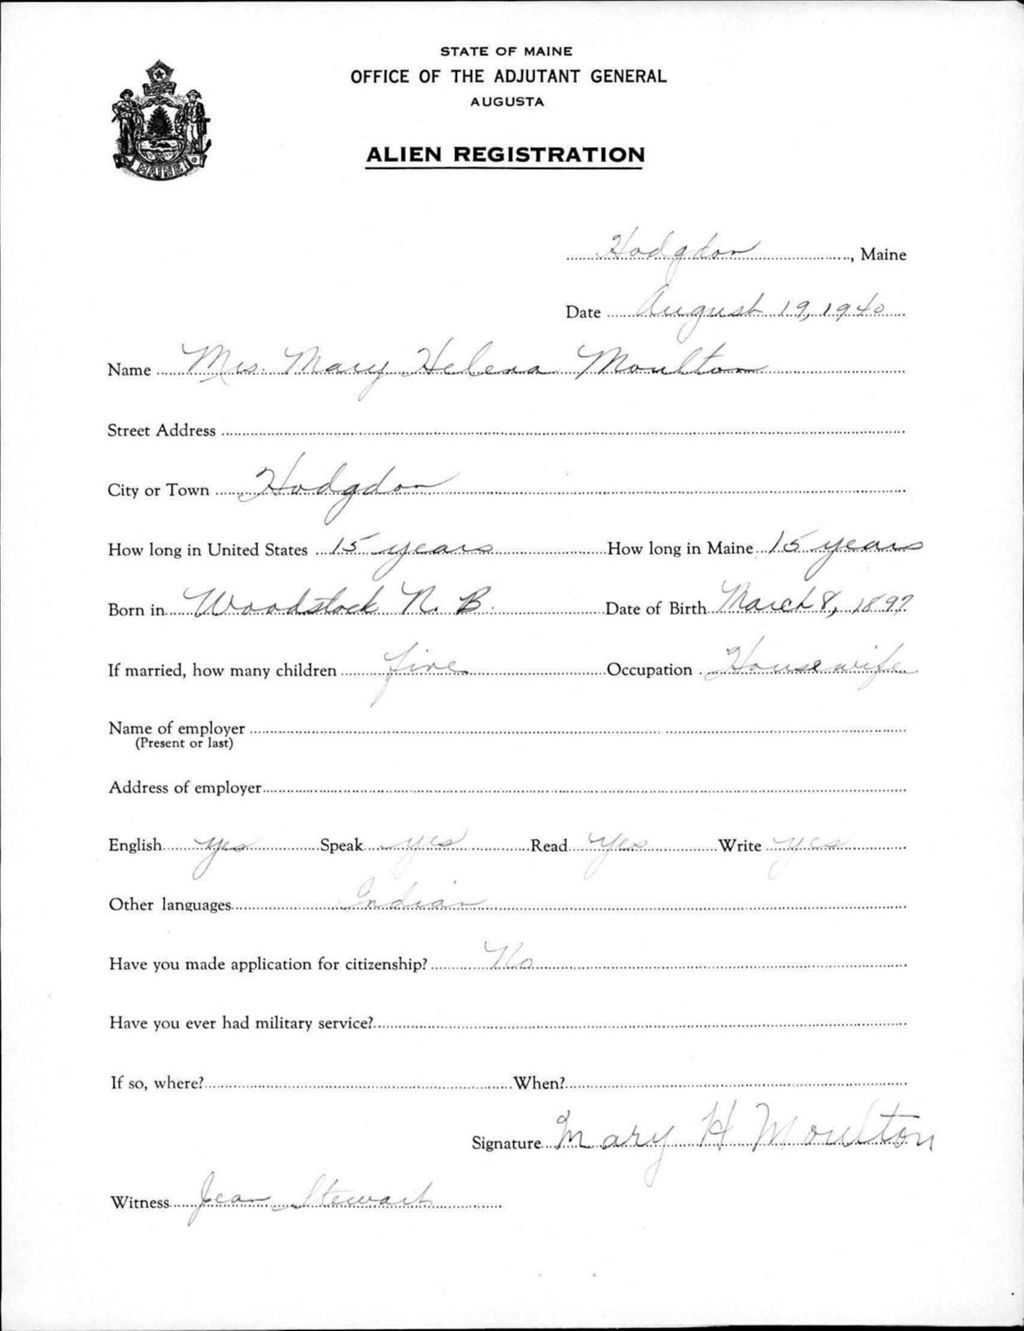 STATE OF MAINE
OFFICE OF THE ADJUTANT GENERAL
AUGUSTA
ALIEN REGISTRATION
MAINE
Hodgdon, Maine
Date August 19, 1940
Name Mrs. Mary Helena Moulton
Street Address
City or Town Hodgdon
How long in United States 15 years How long in Maine 15 years
Born in Woodstock N. B. Date of Birth March 8, 1897
If married, how many children five Occupation Housewife
Name of employer
(Present or last)
Address of employer
English yes Speak yes Read yes Write yes
Other languages Indian
Have you made application for citizenship? No
Have you ever had military service?
If so, where? When?
Signature Mary H Moulton
Witness Jean Stewart